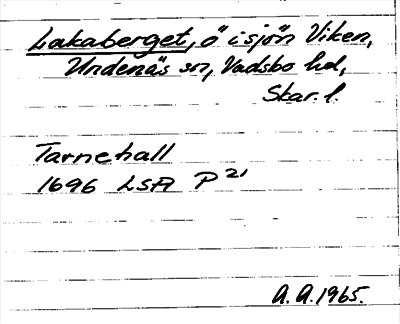 Lakaberget, ö i sjön Viken,
Undenäs sn, Vadsbo hd,
Skar. l.
Tarnehall
1696 LSA P 21
A. A. 1965.